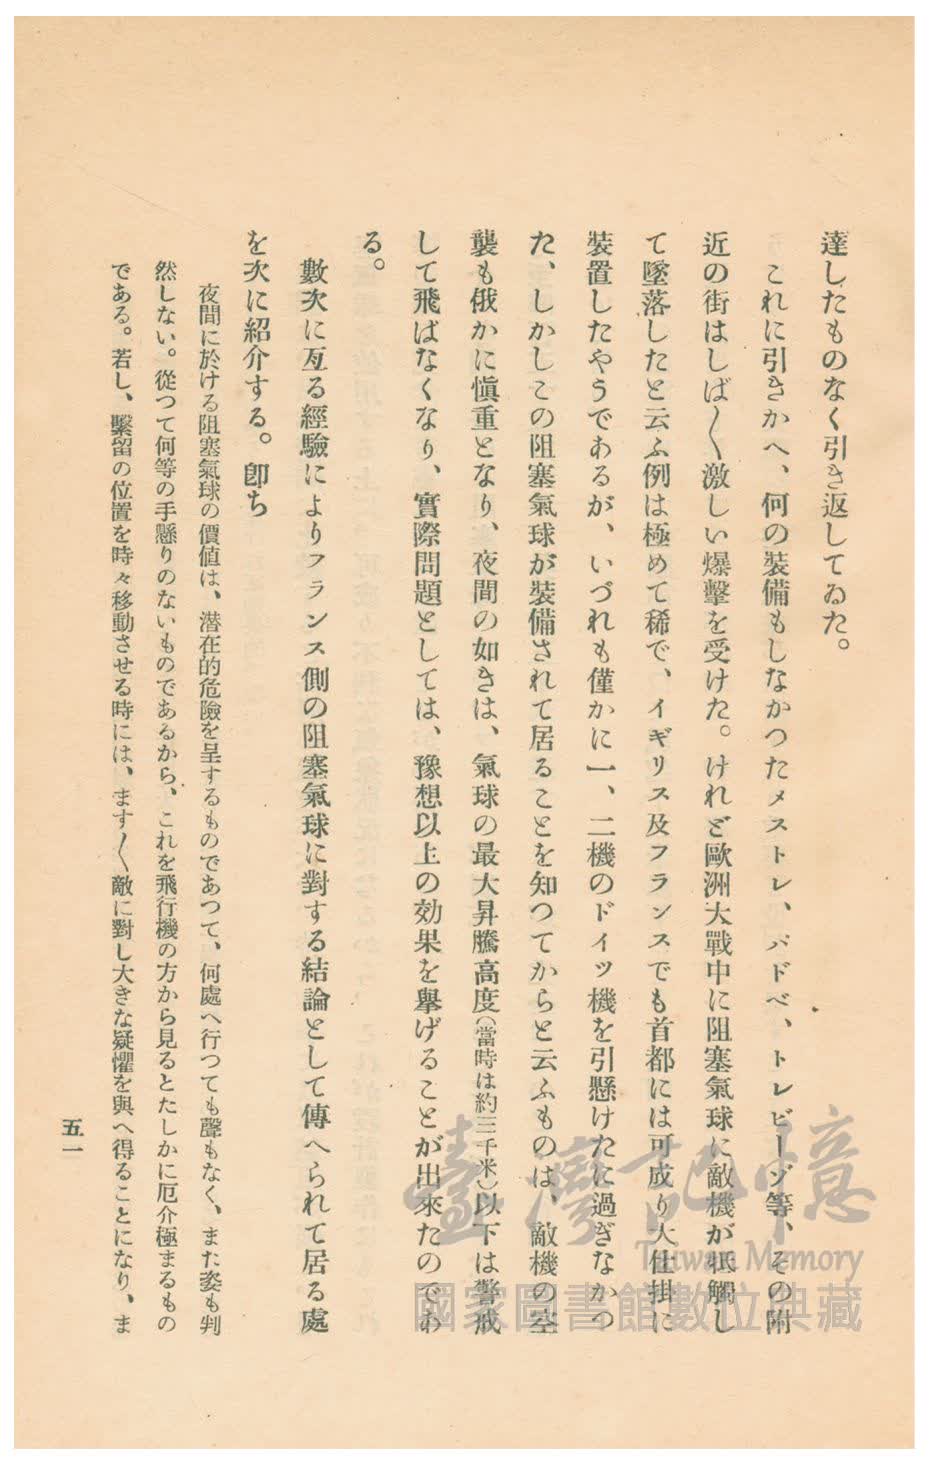 達したものなく引き返してゐた。
これに引きかへ、何の裝備もしなかつたメストレ、パドベ、トレビーゾ等、その附
近の街はしば〱激しい爆擊を受けた。けれど歐洲大戰中に阻塞氣球に敵機が牴觸し
て墜落したと云ふ例は極めて稀で、イギリス及フランスでも首都には可成り大仕掛に
裝置したやうであるが、いづれも僅かに一、二機のドイツ機を引懸けたに過ぎなかつ
た、しかしこの阻塞氣球が裝備されて居ることを知つてからと云ふものは、敵機の空
襲も俄かに愼重となり、夜間の如きは、氣球の最大昇騰高度(當時は約三千米)以下は警戒
して飛ばなくなり、實際問題としては、豫想以上の効果を擧げることが出來たのであ
る。
數次に亙る經驗によりフランス側の阻塞氣球に對する結論として傳へられて居る處
を次に紹介する。卽ち
夜間に於ける阻塞氣球の價値は、潜在的危險を呈するものであつて、何處へ行つても聲もなく、また姿も判
然しない。從つて何等の手懸りのないものであるから、これを飛行機の方から見るとたしかに厄介極まるもの
である。若し、繫留の位置を時々移動させる時には、ます〱敵に對し大きな疑懼を與へ得ることになり、ま
五一
臺灣記憶
Taiwan Memory
國家圖書館數位典藏